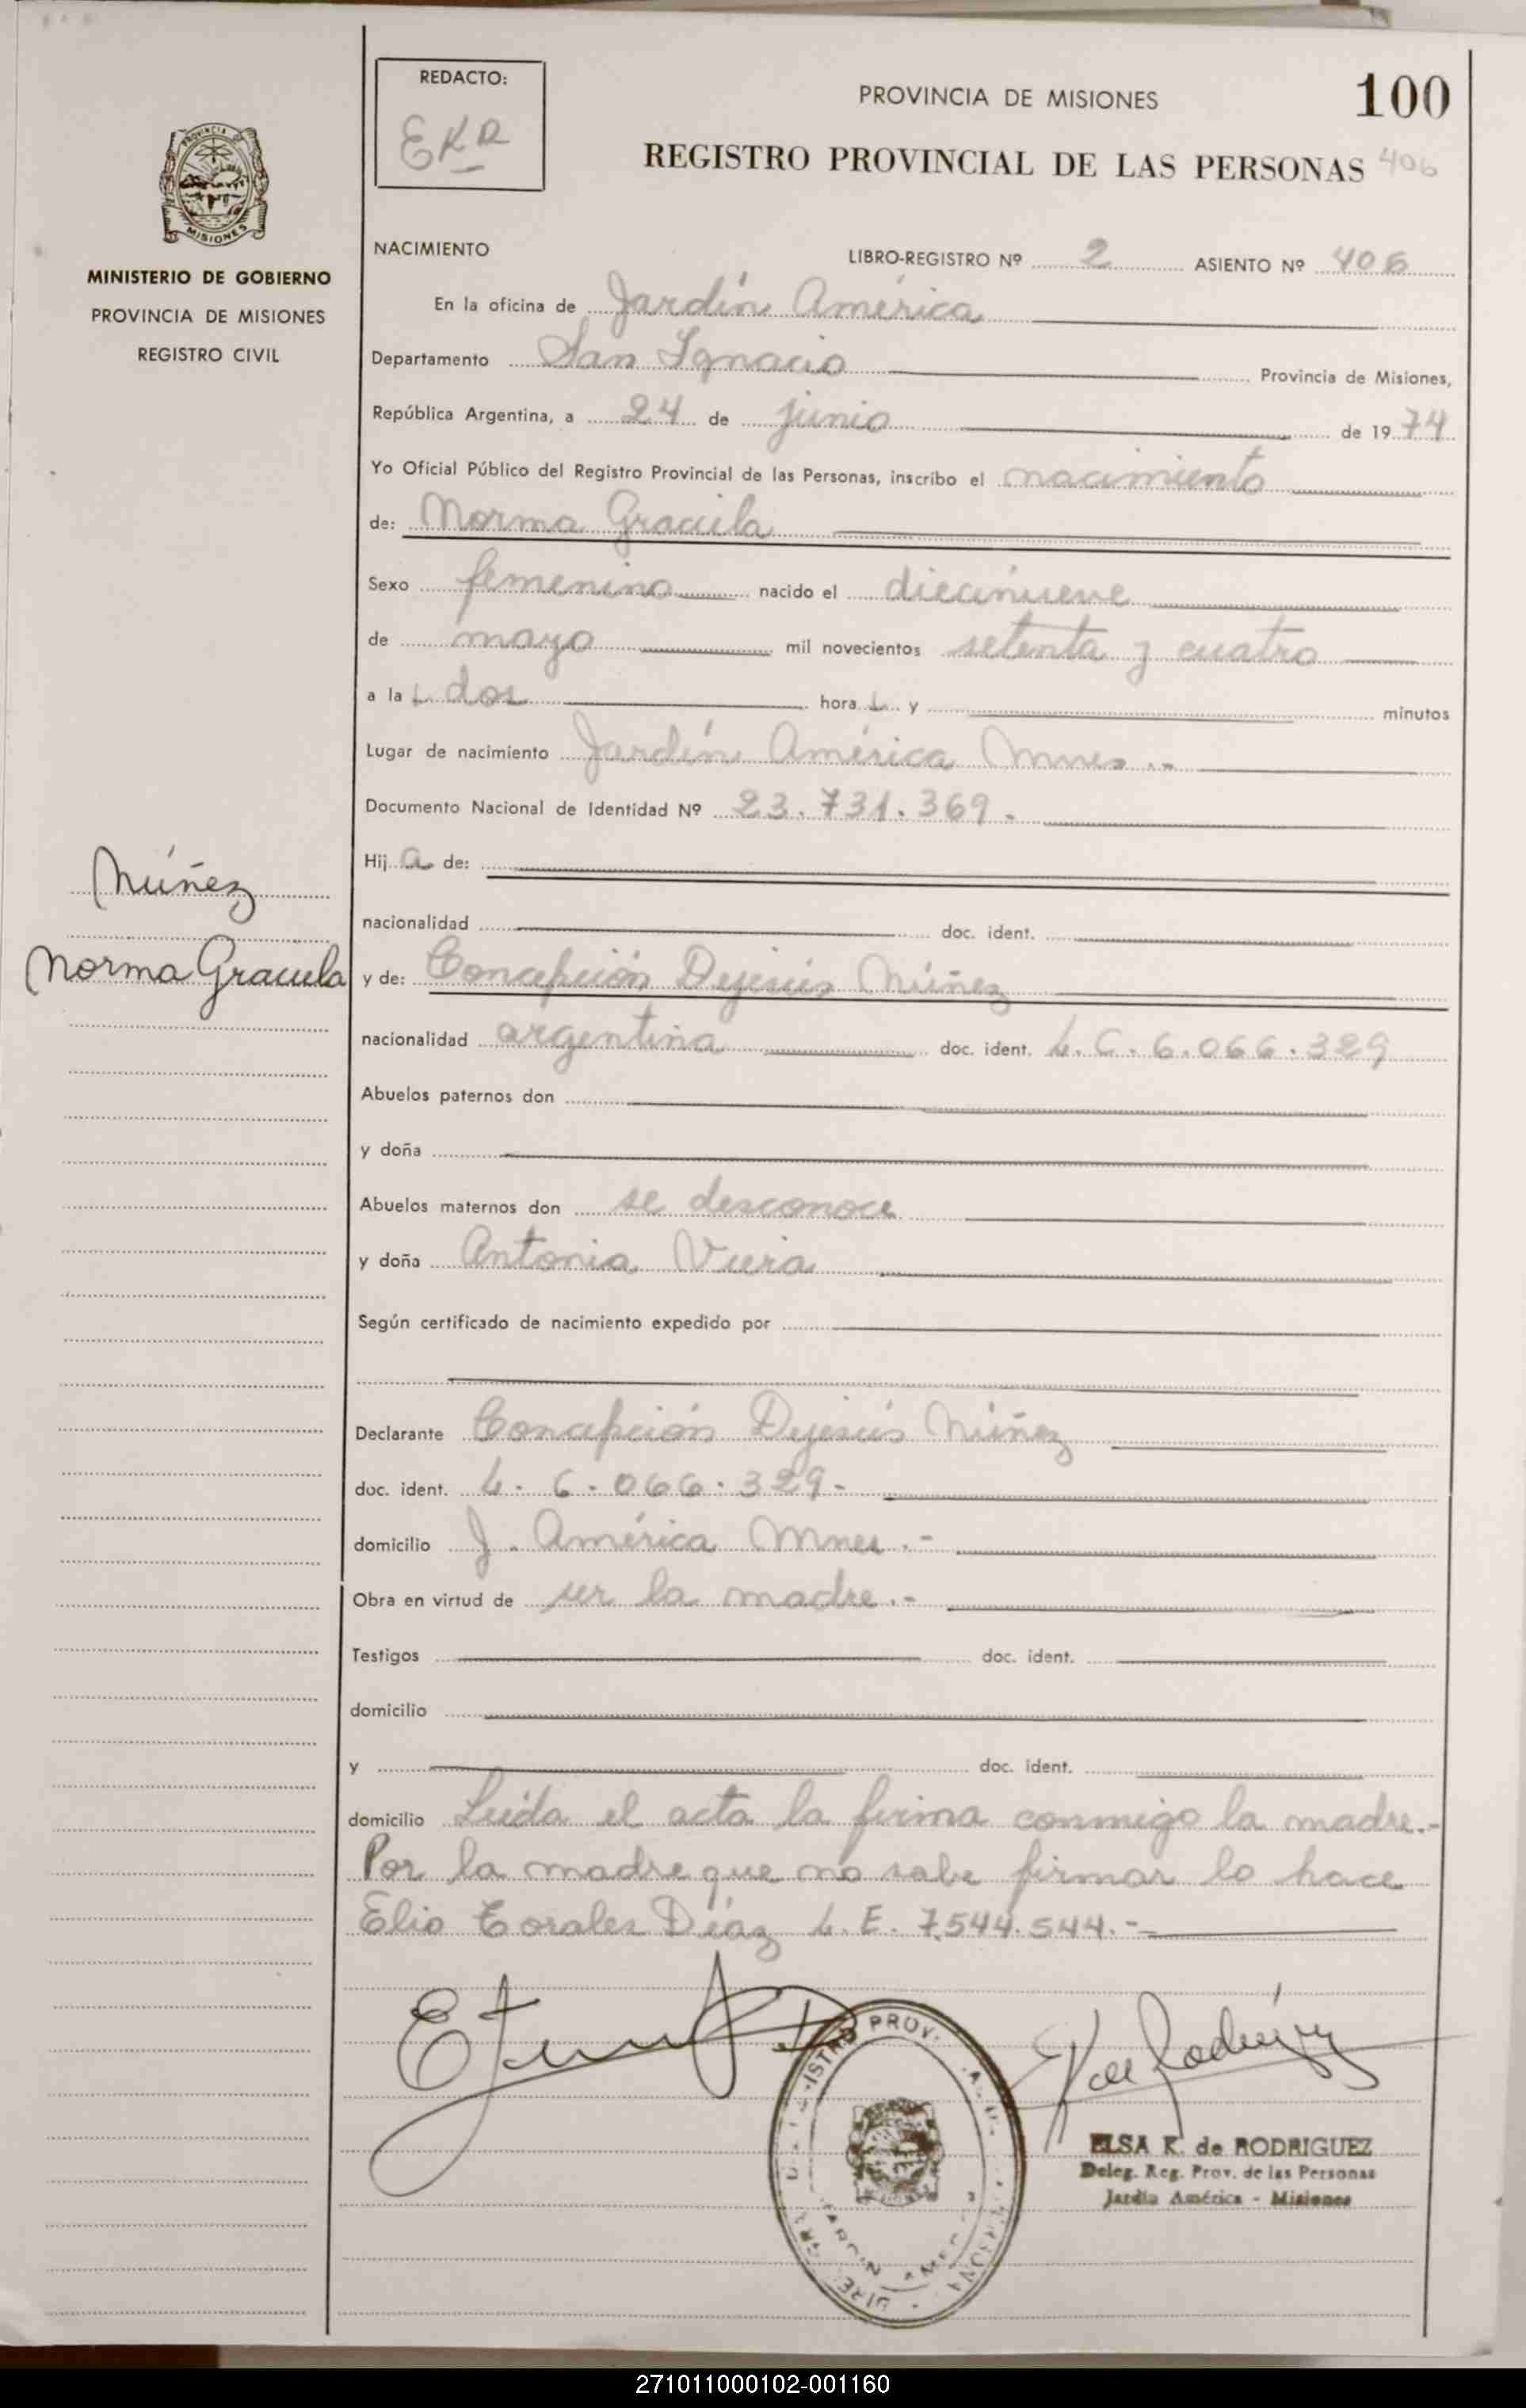 REDACTO:
EKR
PROVINCIA DE MISIONES
100
REGISTRO PROVINCIAL DE LAS PERSONAS 406
MISIONES
MINISTERIO DE GOBIERNO
PROVINCIA DE MISIONES
REGISTRO CIVIL
NACIMIENTO LIBRO-REGISTRO Nº 2 ASIENTO Nº 406
En la oficina de Jardín América
Departamento San Ignacio Provincia de Misiones,
República Argentina, a 24 de junio de 1974
Yo Oficial Público del Registro Provincial de las Personas, inscribo el nacimiento
de: Norma Graciela
Sexo femenino nacido el diecinueve
de mayo mil novecientos setenta y cuatro
a las dos horas y minutos
Lugar de nacimiento Jardín América Mnes.-
Documento Nacional de Identidad Nº 23.731.369.
Hija de:
nacionalidad doc. ident.
Núñez
Norma Graciela
y de: Concepción Dejesús Núñez
nacionalidad argentina doc. ident. L.C. 6.066.329
Abuelos paternos don
y doña
Abuelos maternos don se desconoce
y doña Antonia Viera
Según certificado de nacimiento expedido por
Declarante Concepción Dejesús Núñez
doc. ident. L. 6.066.329-
domicilio J. América Mnes.-
Obra en virtud de ser la madre.-
Testigos doc. ident.
domicilio
y doc. ident.
domicilio Leída el acta la firma conmigo la madre.-
Por la madre que no sabe firmar lo hace
Elio Corales Díaz L.E. 7.544.544.-
PROV.
ELSA K. de RODRIGUEZ
Deleg. Reg. Prov. de las Personas
Jardín América - Misiones
271011000102-001160